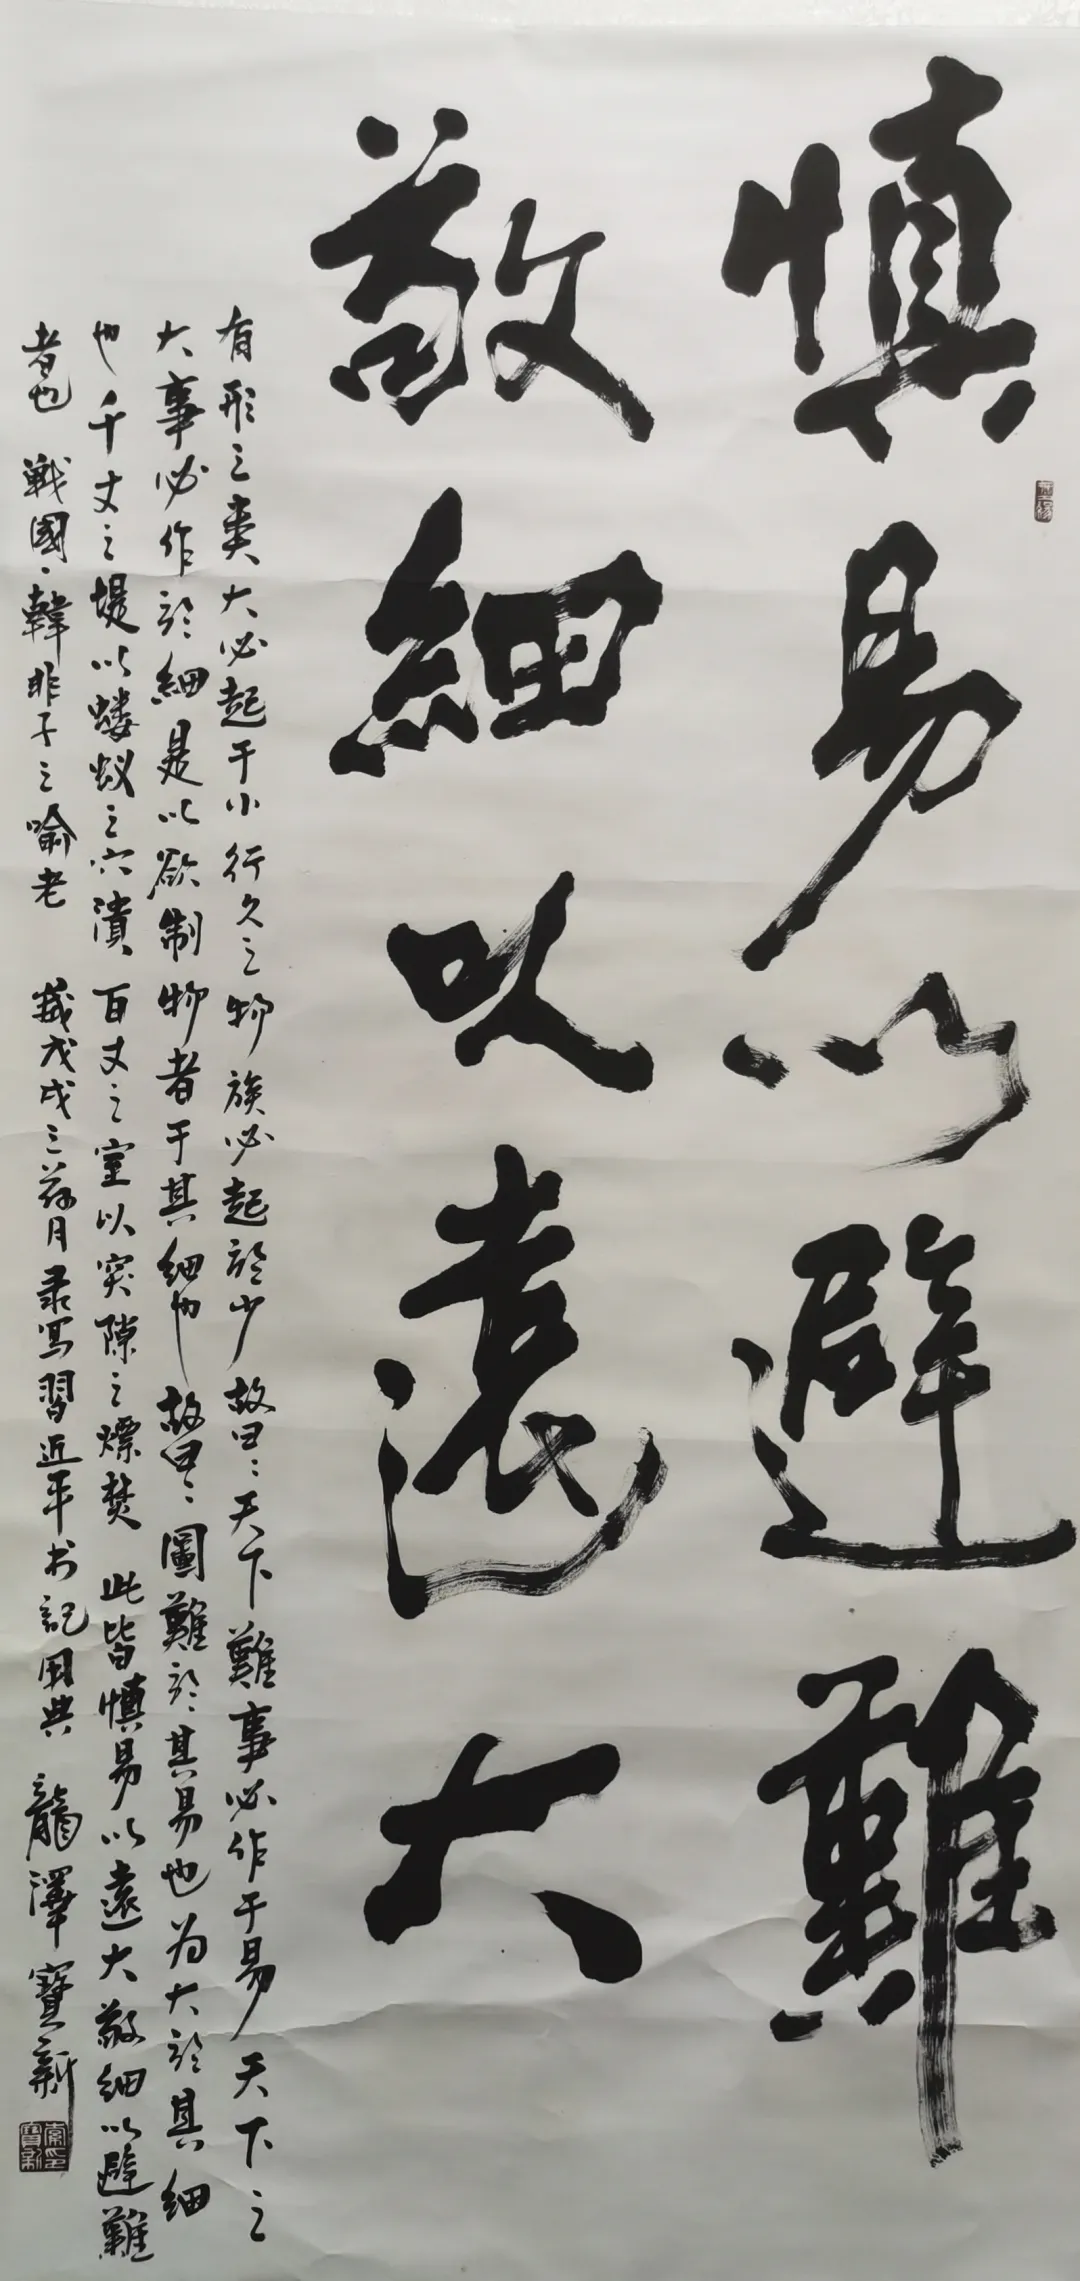 慎易以避難
敬細以遠大
有形之类大必起于小行久之物族必起於少故曰:天下難事必作于易天下之
大事必作於細是以欲制物者于其細也故曰:圖難於其易也为大於其細
也千丈之堤以螻蚁之穴潰百丈之室以突隙之熛焚此皆慎易以遠大敬細以避難
者也戰國·韓非子之喻老歲戊戌三荷月录寫習近平书記用典龍澤寶新